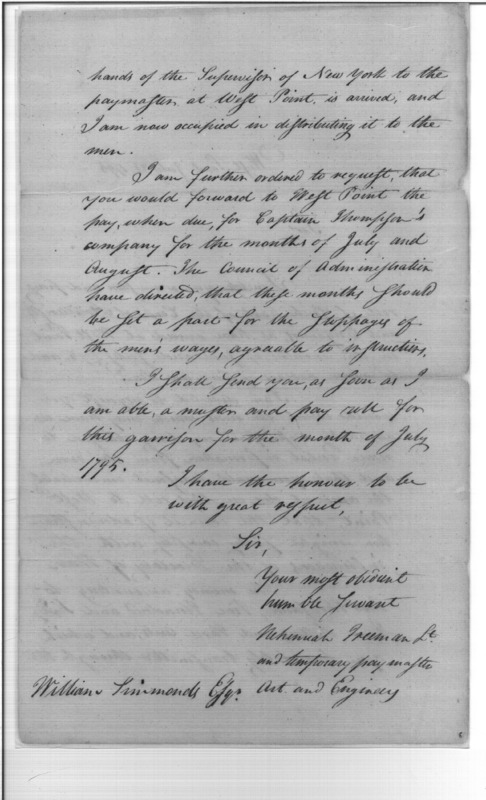 hands of the Supervisor of New York to the
paymaster at West Point is arrived, and
I am now occupied in distributing it to the
men.
I am further ordered to request, that
you would forward to West Point the
pay, when due, for Captain Thompson's
company for the months of July and
August. The Council of Administration
have directed, that these months should
be set a part for the stoppages of
the men's wages, agreable to instructions.
I shall send you, as soon as I
am able, a muster and pay roll for
this garrison for the month of July
1795.
I have the honour to be
with great respect,
Sir,
Your most obedient
humble Servant
Nehemiah Freeman Lt.
and temporary paymaster
William Simmonds Esqr. Art and Engineers